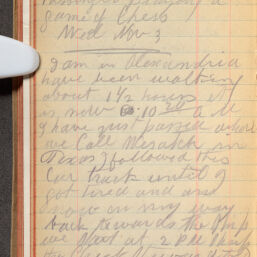 passengers playing a
game of Chess
Wed Nov 3
I am in Alexandria
have been walking
about 1½ hours it
is now 10:20 a M
I have just passed where
we call Mesach in
Texas I followed this
Car track until I
got tired and am
now on my way
back towards the Ship
we start at 2 P.M. Sharp